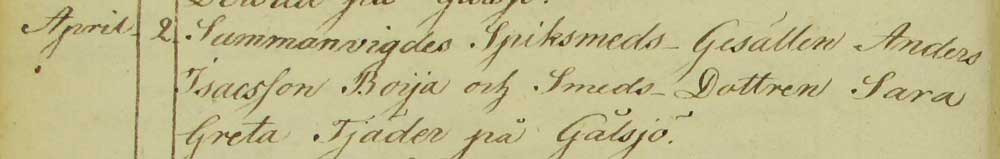 på Gålsjö.
April 2. Sammanvigdes Spiksmeds-Gesällen Anders
Isacsson Boija och Smeds-Dottren Sara
Greta Tjäder på Gålsjö.